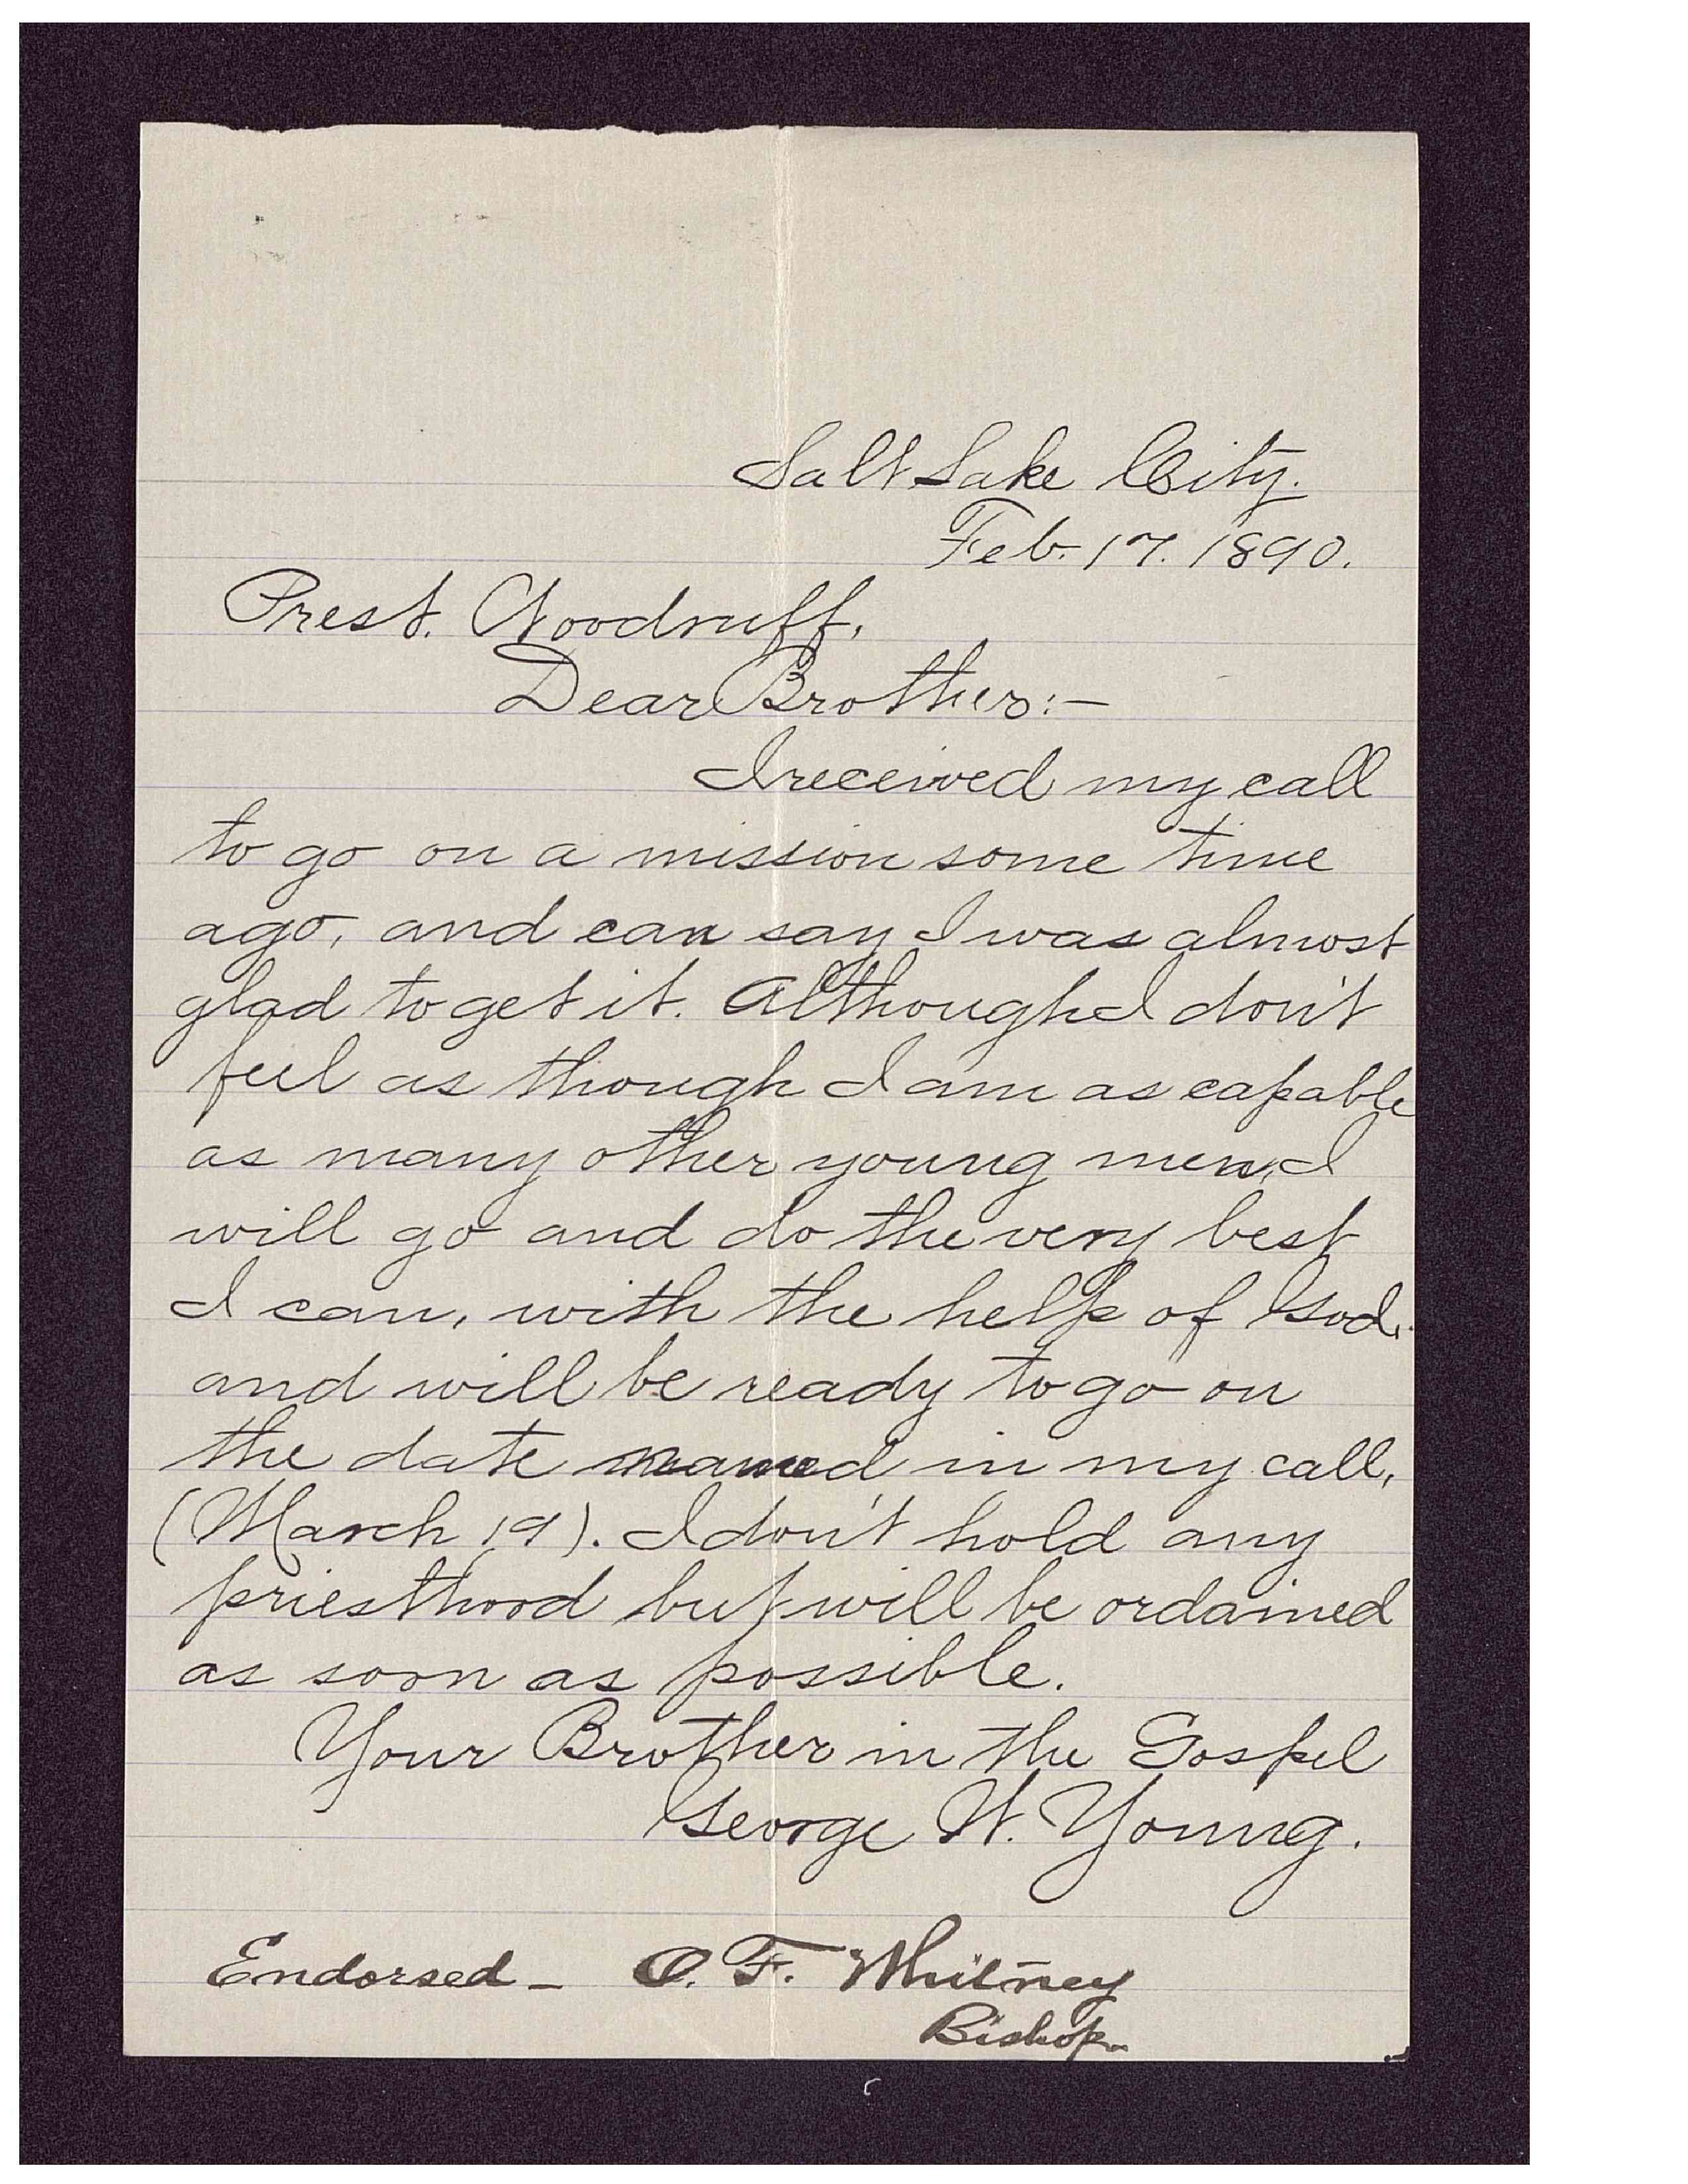 Salt Lake City.
Feb. 17. 1890.
Prest. Woodruff,
Dear Brother:-
I received my call
to go on a mission some time
ago, and can say I was almost
glad to get it. Although I don't
feel as though I am as capable
as many other young men, I
will go and do the very best
I can, with the help of God.
and will be ready to go on
the date named in my call,
(March 19). I don't hold any
priesthood but will be ordained
as soon as possible.
Your Brother in the Gospel
George W. Young.
Endorsed - O. F. Whitney
Bishop